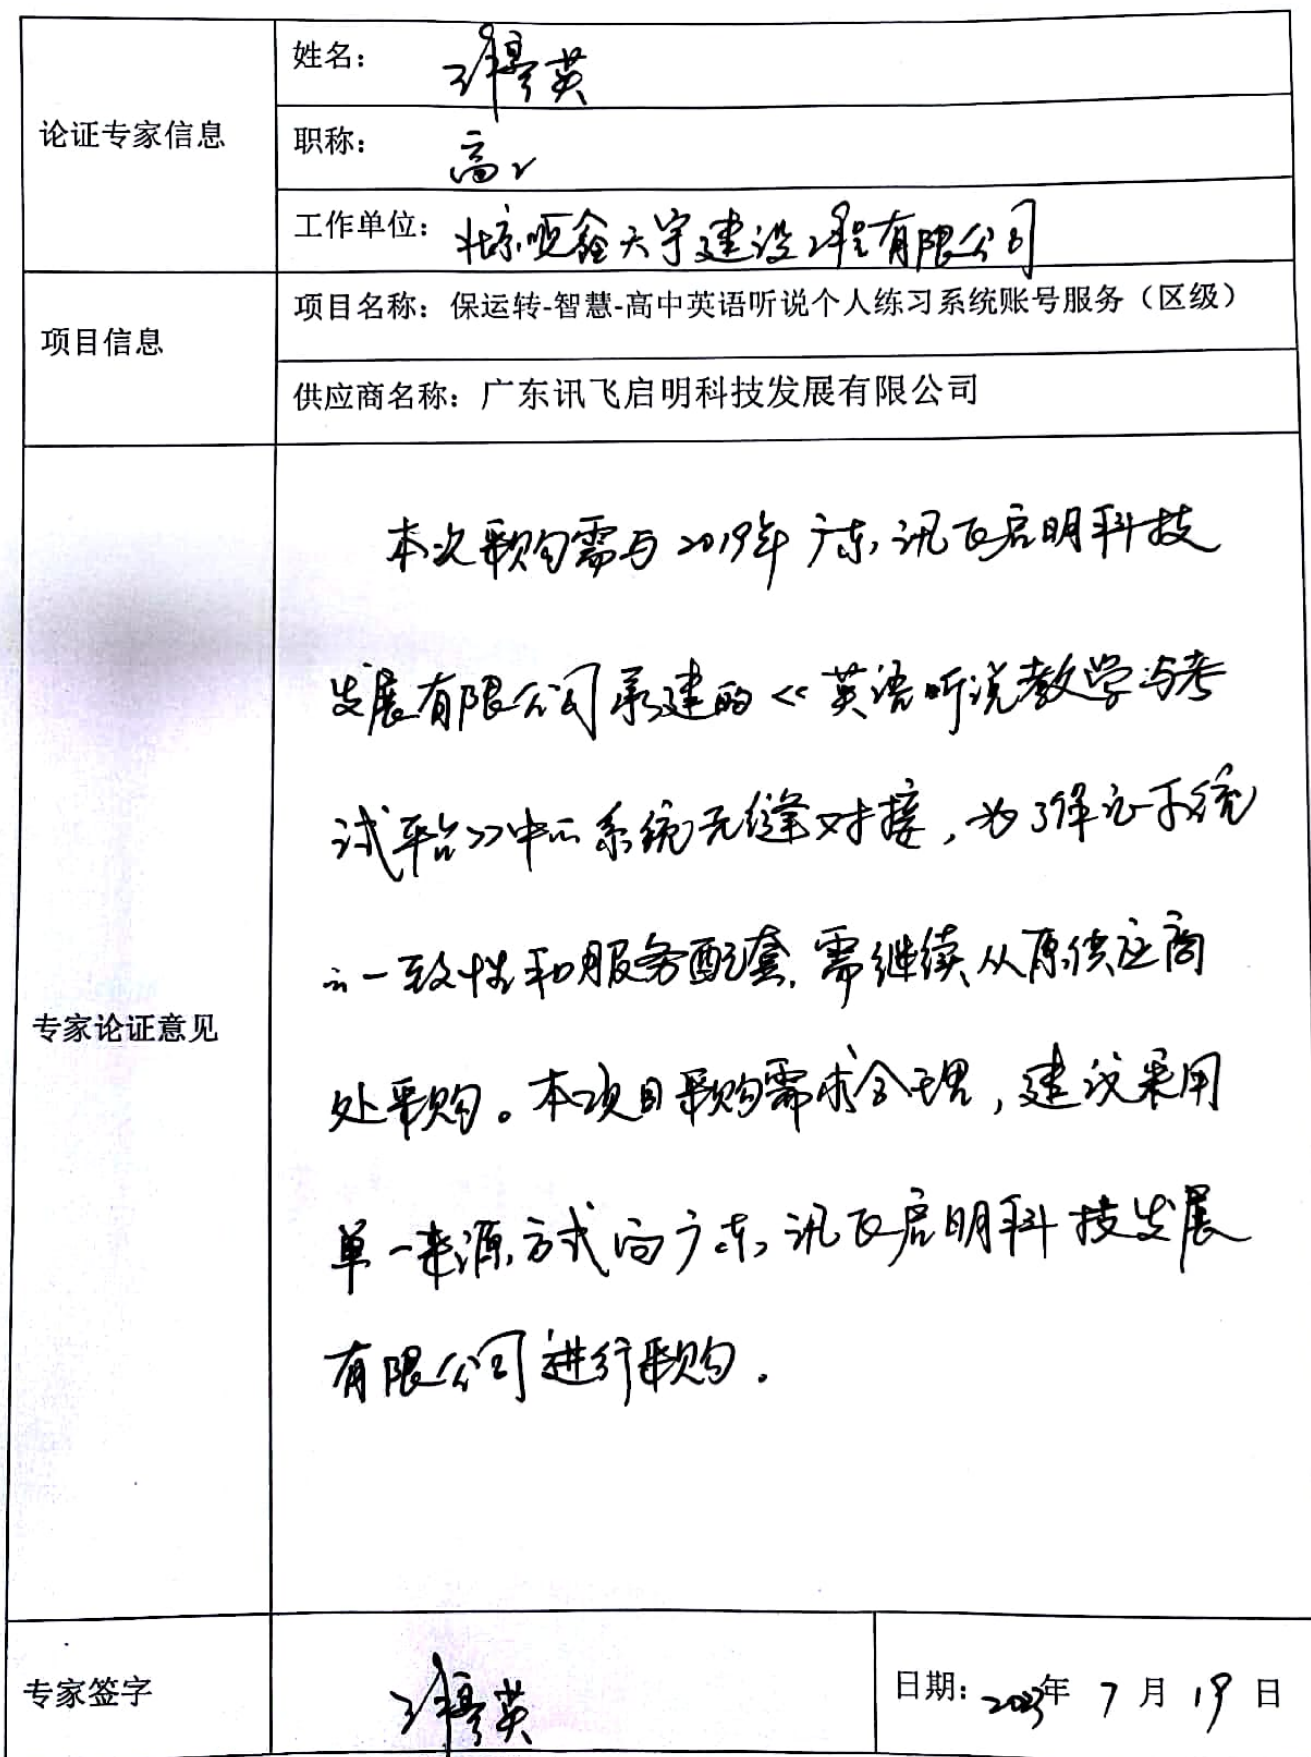 论证专家信息
姓名：
英
职称：
高工
工作单位：
北京 鑫天宇建设工程有限公司
项目信息
项目名称：保运转-智慧-高中英语听说个人练习系统账号服务（区级）
供应商名称：广东讯飞启明科技发展有限公司
专家论证意见
本次采购需与2019年广东讯飞启明科技
发展有限公司承建的《英语听说教学与考
试平台》中的系统无缝对接，为了保证系统
的一致性和服务配套，需继续从原供应商
处采购。本项目采购需求合理，建议采用
单一来源方式向广东讯飞启明科技发展
有限公司进行采购。
专家签字
英
日期：2023年7月19日